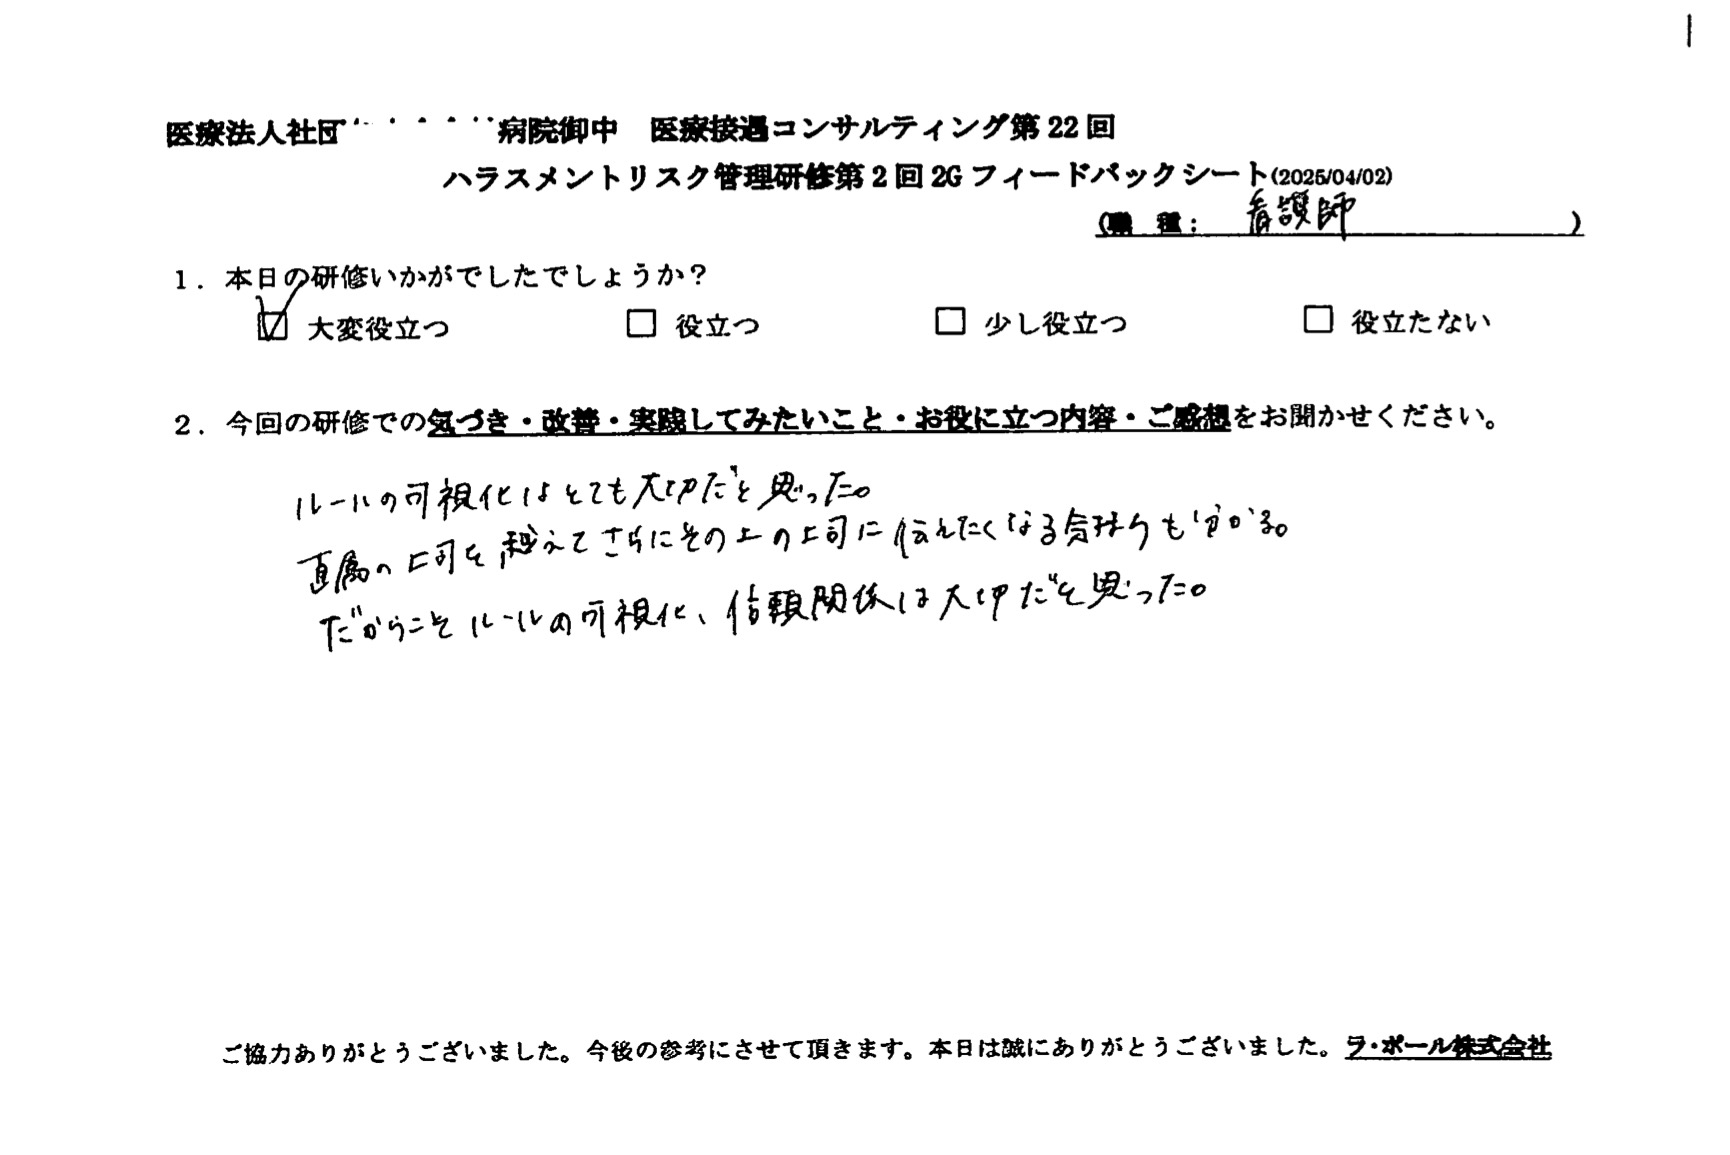 医療法人社団 病院御中 医療接遇コンサルティング第22回
ハラスメントリスク管理研修第2回2Gフィードバックシート(2025/04/02)
(職 種: 看護師 )
1.本日の研修いかがでしたでしょうか?
☑ 大変役立つ □ 役立つ □ 少し役立つ □ 役立たない
2.今回の研修での気づき・改善・実践してみたいこと・お役に立つ内容・ご感想をお聞かせください。
ルールの可視化はとても大切だと思った。
直属の上司を越えてさらにその上の上司に伝えたくなる気持ちも分かる。
だからこそルールの可視化、信頼関係は大切だと思った。
ご協力ありがとうございました。今後の参考にさせて頂きます。本日は誠にありがとうございました。ラ・ポール株式会社